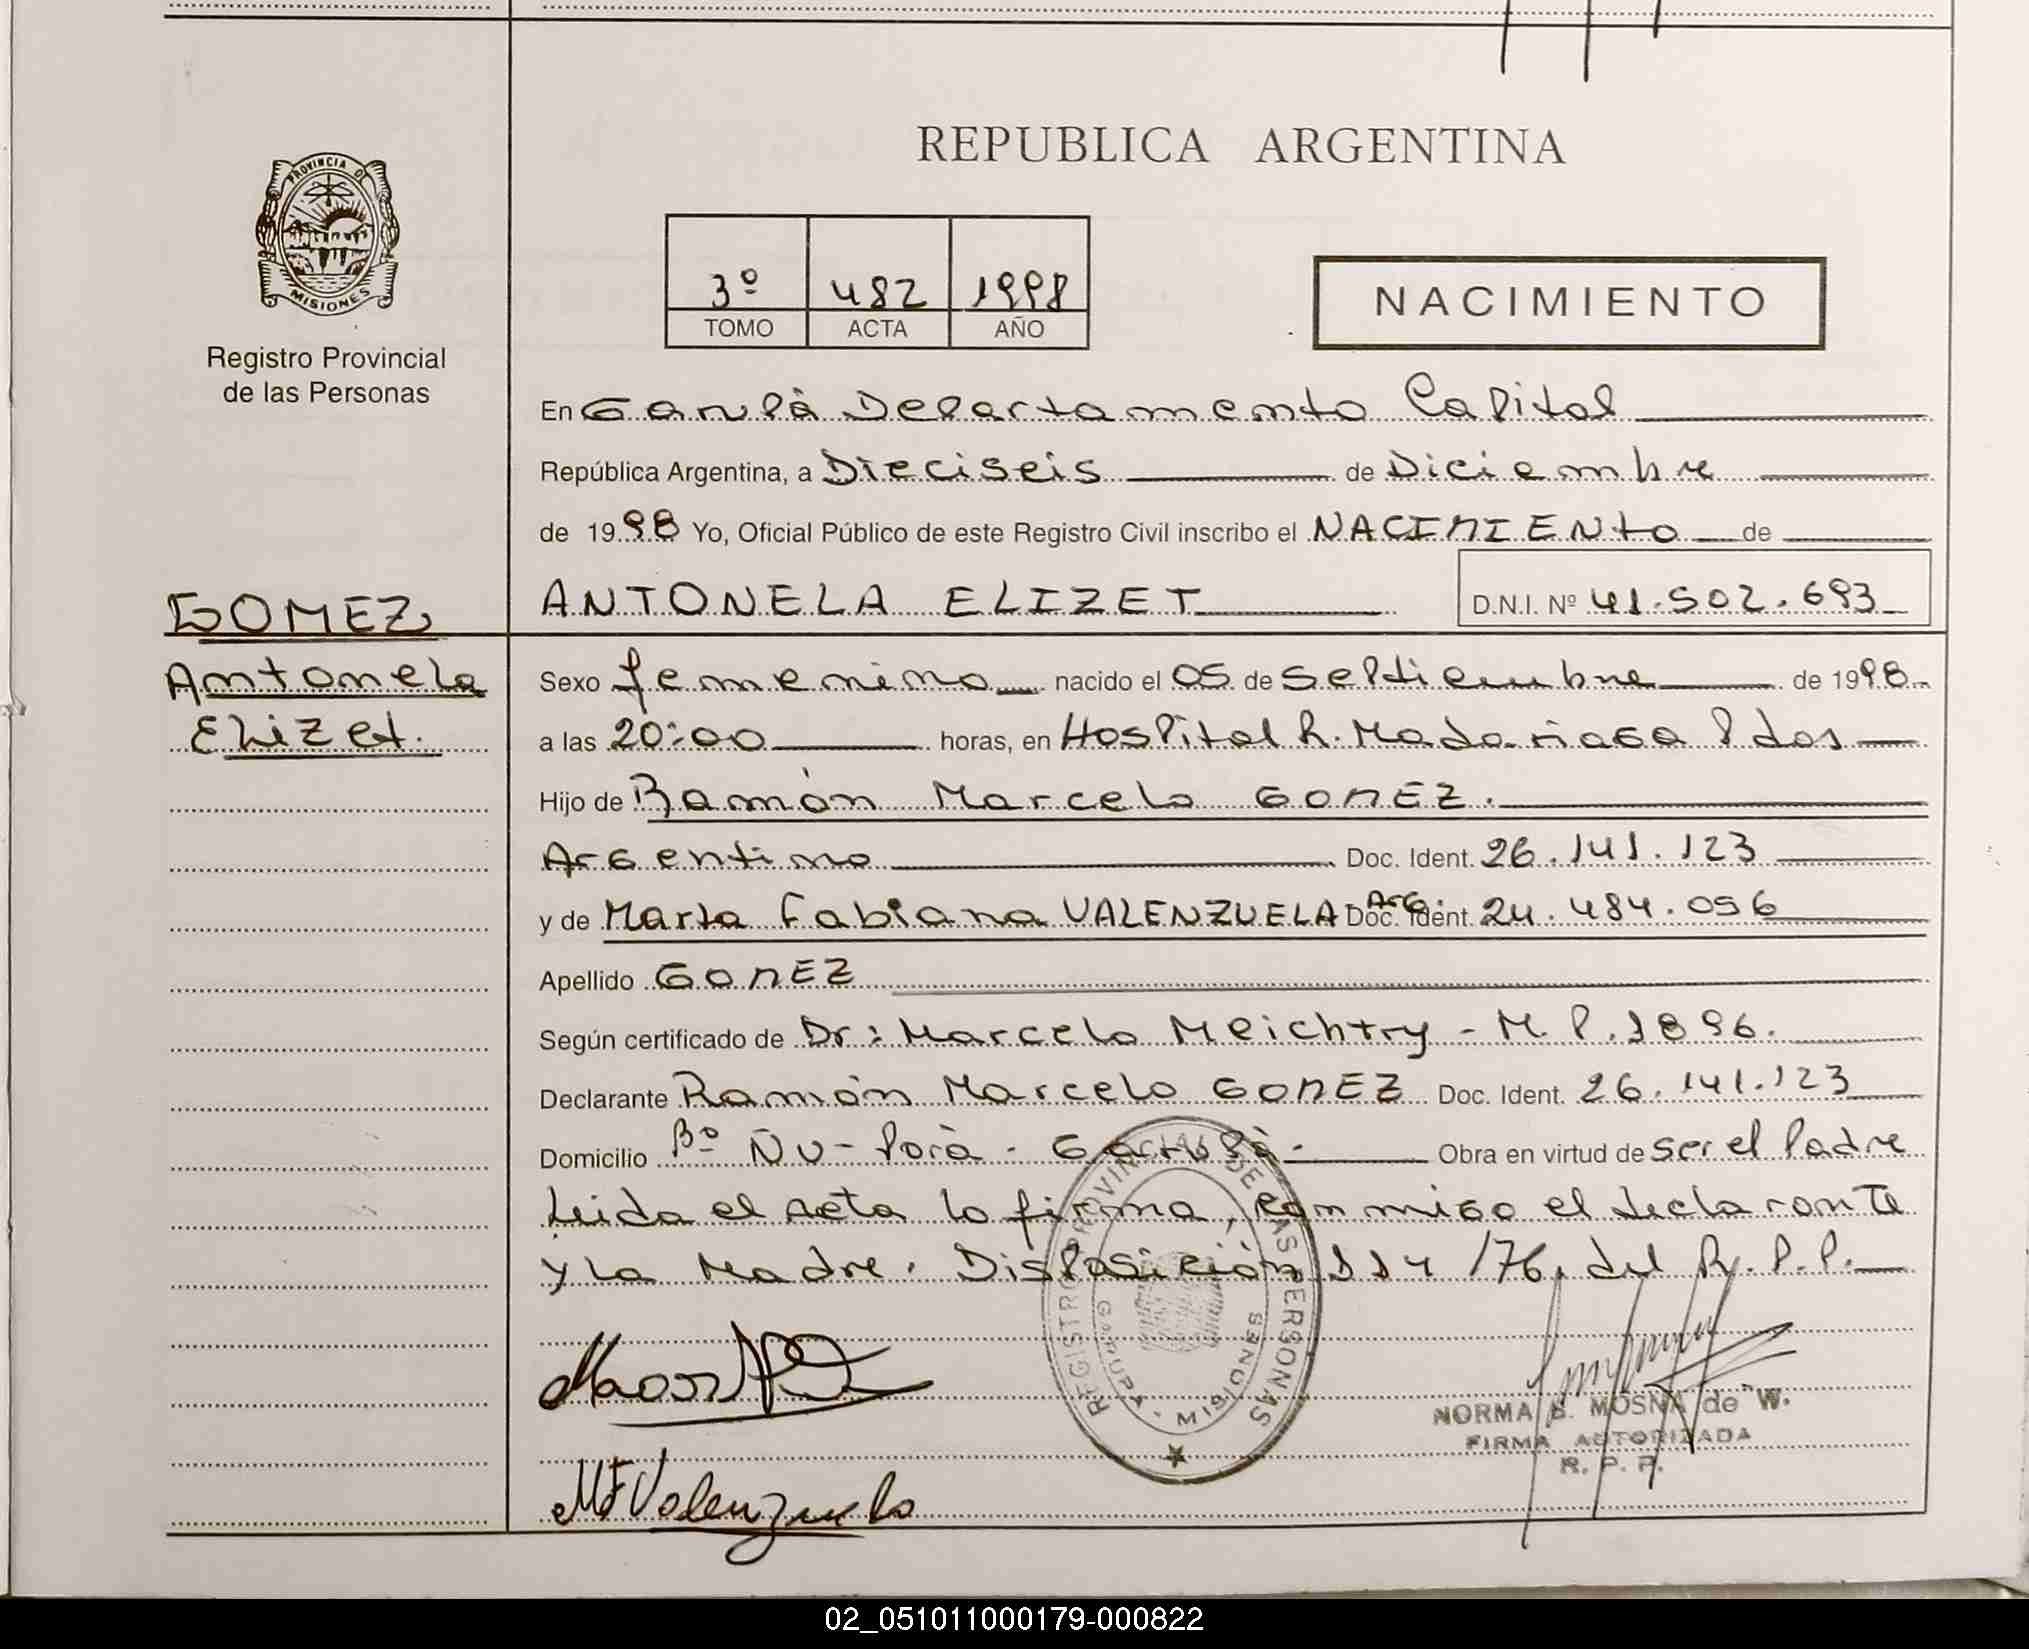 REPUBLICA ARGENTINA
PROVINCIA DE
MISIONES
Registro Provincial
de las Personas
3º 482 1998
TOMO ACTA AÑO
NACIMIENTO
En Garupà Departamento Capital
República Argentina, a Dieciseis de Diciembre
de 1998 Yo, Oficial Público de este Registro Civil inscribo el NACIMIENto de
ANTONELA ELIZET D.N.I. Nº 41.502.693
GOMEZ
Antonela
Elizet.
Sexo femenino nacido el 05 de Septiembre de 1998
a las 20:00 horas, en Hospital R. Madariaga Pdas
Hijo de Ramón Marcelo GOMEZ.
Argentino Doc. Ident. 26.141.123
y de Marta Fabiana VALENZUELA Arg. Doc. Ident. 24.484.056
Apellido GOMEZ
Según certificado de Dr: Marcelo Meichtry - M.P. 1896.
Declarante Ramón Marcelo GOMEZ Doc. Ident. 26.141.123
Domicilio Bº Ñu-Porà - Garupà - Obra en virtud de ser el Padre
Leida el acta la firma, conmigo el declarante
y la Madre. Disposición 114/76, del R.P.P.
REGISTRO PROVINCIAL DE LAS PERSONAS
GARUPA - MISIONES
NORMA B. MOSNA de W.
FIRMA AUTORIZADA
R. P. P.
MF Valenzuela
02_051011000179-000822